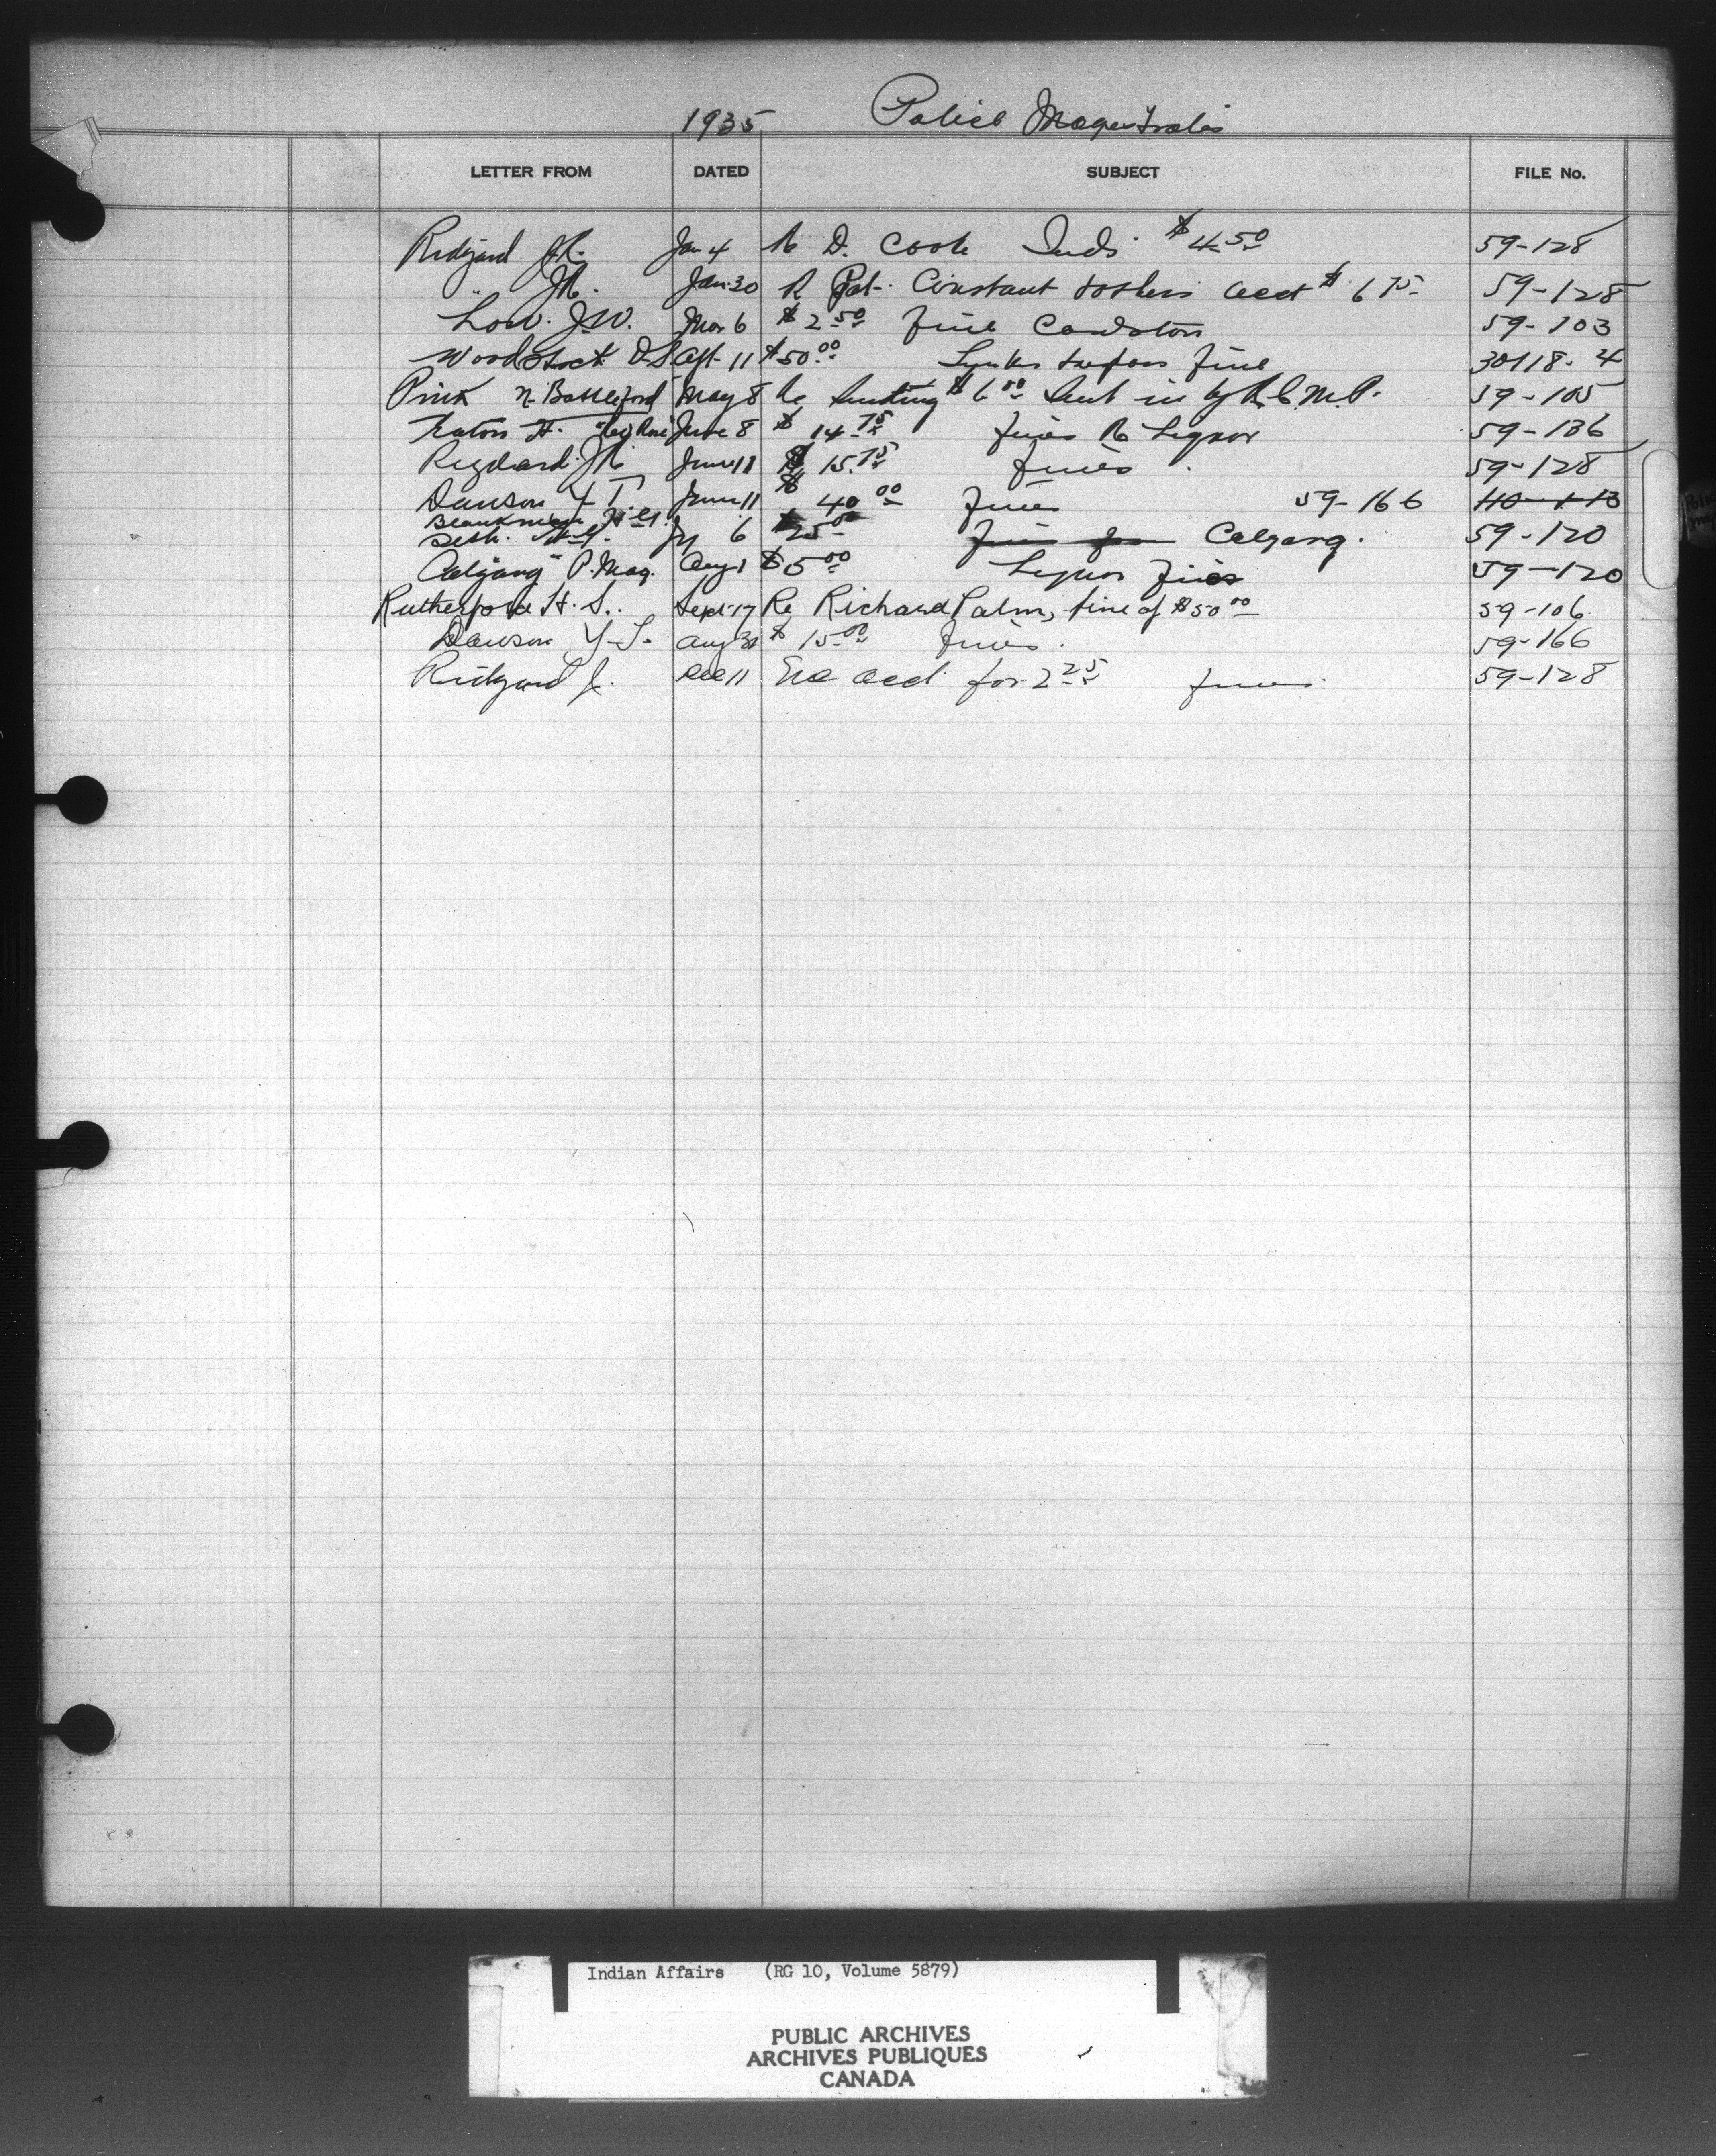 1935 Police Magistrates
LETTER FROM DATED SUBJECT FILE No.
Ridgard J.R. Jan 4 Re D. Cook Inds $4.50 59-128
" J.R. Jan 30 R Pat. Constant & others acct $6.75 59-128
Low. J.W. Mar 6 $2.50 fine Cardston 59-103
Woodstock D.S. Apl. 11 $50.00 fine 30118-4
Pink N. Battleford May 8 Re $6.00 sent in by R.C.M.P. 59-105
H. June 8 $14.75 fines Re Liquor 59-136
Rigdard. J.R. June 11 $15.75 fines 59-128
Dawson Y T June 11 $40.00 fines 59-166 40-1-13
Jy 6 $25.00 fines from Calgary. 59-120
Calgary P. Mag. Aug 1 $5.00 Liquor fines 59-120
Rutherford H. S. Sept. 17 Re Richard Palm, fine of $50.00 59-106
Dawson Y-T. Aug 30 $15.00 fines. 59-166
Ridgard J. Dec 11 acct for 2.25 fines. 59-128
Indian Affairs (RG 10, Volume 5879)
PUBLIC ARCHIVES
ARCHIVES PUBLIQUES
CANADA